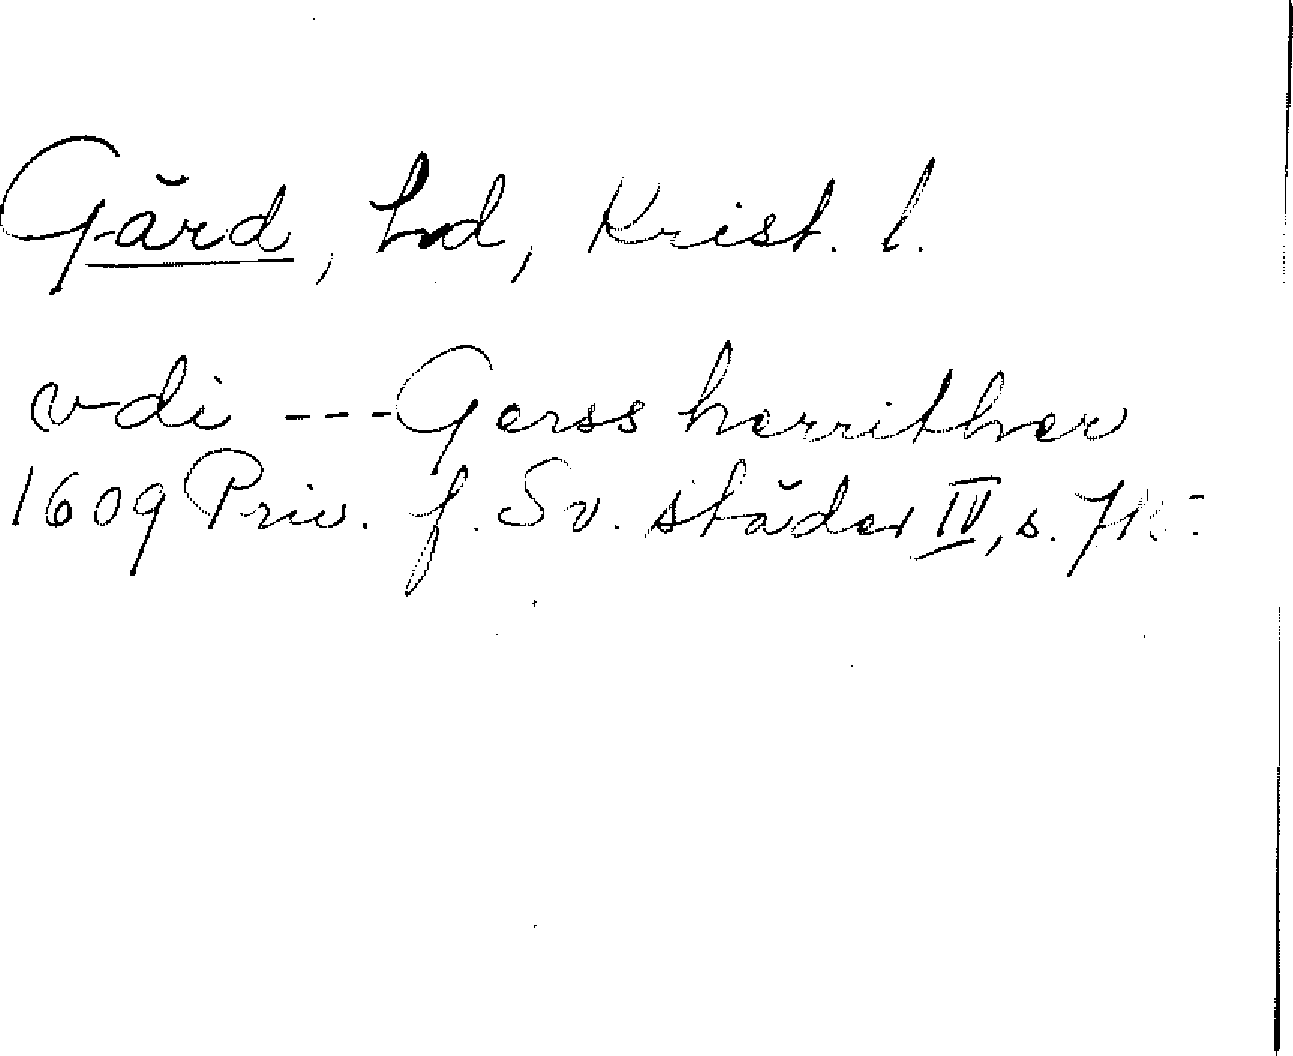 Gärd, hd, Krist. l.
vdi --- Gerss herrither
1609 Priv. f. Sv. städer IV, s.